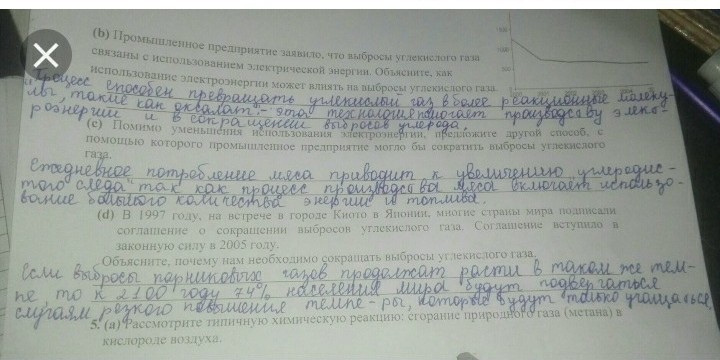 (b) Промышленное предприятие заявило, что выбросы углекислого газа
связаны с использованием электрической энергии. Объясните, как
использование электроэнергии может влиять на выбросы углекислого газа.
Процесс способен превращать углекислый газ в более реакционные молеку-
лы, такие как оксалат - эта технология помогает производству элект-
роэнергии и в сокращении выбросов углерода.
(c) Помимо уменьшения использования электроэнергии, предложите другой способ, с
помощью которого промышленное предприятие могло бы сократить выбросы углекислого
газа.
Ежедневное потребление мяса приводит к увеличению углеродис-
того следа так как процесс производства мяса включает использо-
вание большого количества энергии и топлива.
(d) В 1997 году, на встрече в городе Киото в Японии, многие страны мира подписали
соглашение о сокращении выбросов углекислого газа. Соглашение вступило в
законную силу в 2005 году.
Объясните, почему нам необходимо сокращать выбросы углекислого газа.
Если выбросы парниковых газов продолжат расти в таком же тем-
пе, то к 2100 году 74% населения мира будут подвергаться
случаям резкого повышения темпе-ры, которые будут только учащаться.
5. (a) Рассмотрите типичную химическую реакцию: сгорание природного газа (метана) в
кислороде воздуха.